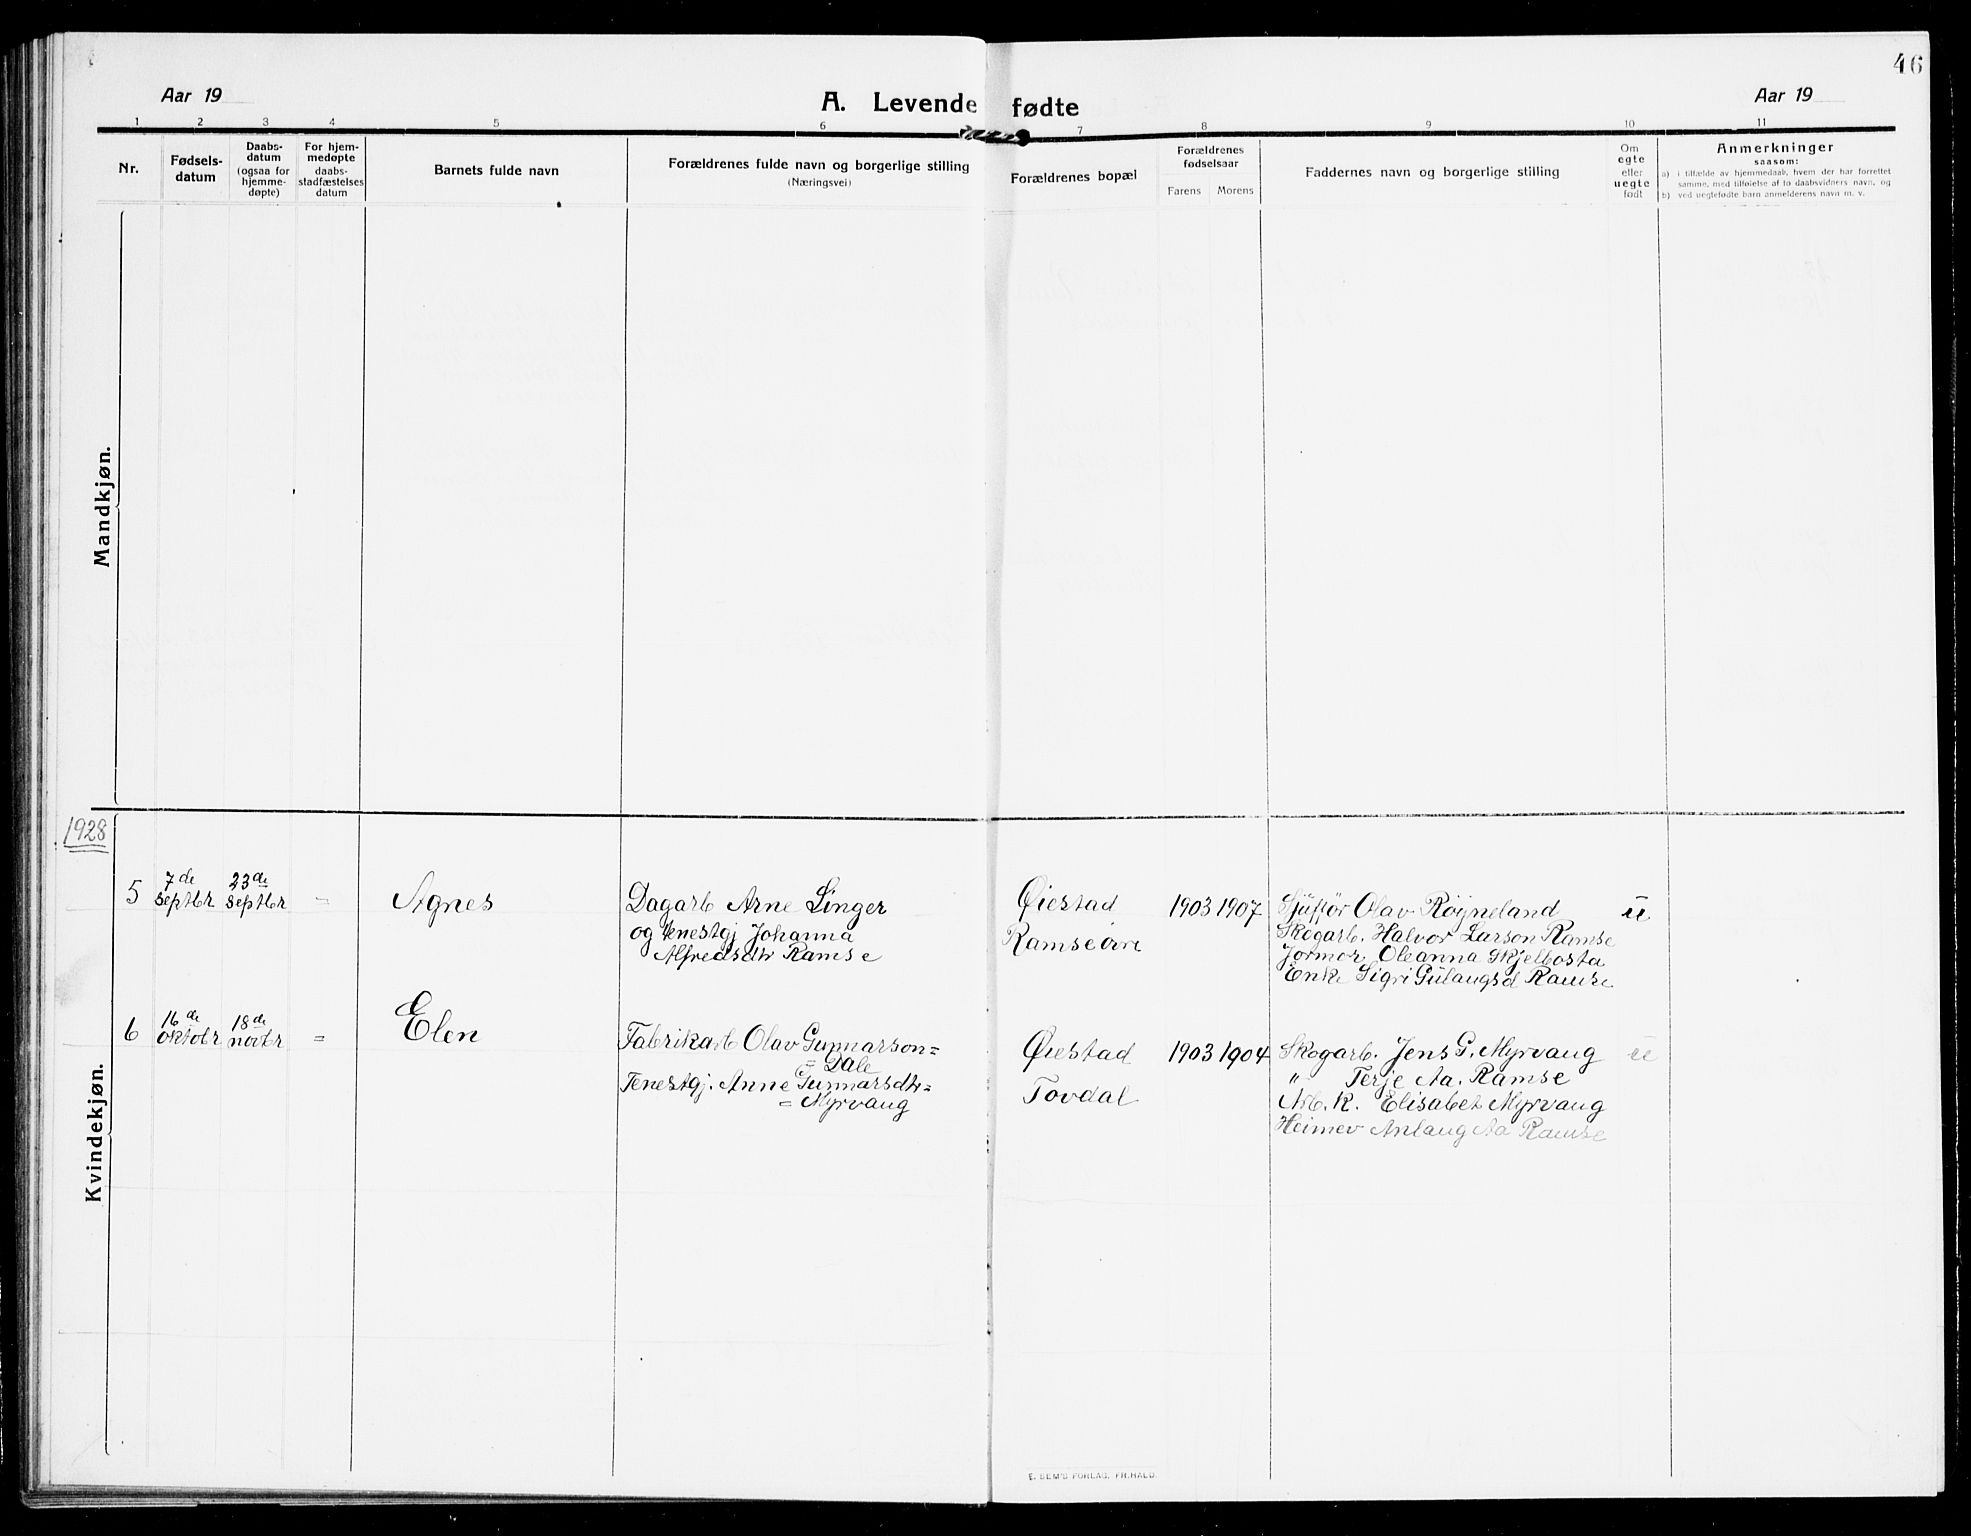 46
Aar 19
A. Levende fødte
Aar 19
1 2 3 4 5 6 7 8 9 10 11
Nr.
Fødsels-
datum
Daabs-
datum
(ogsaa for
hjemme-
døpte)
For hjem-
medøpte
daabs-
stadfæstelses
datum
Barnets fulde navn
Forældrenes fulde navn og borgerlige stilling
(Næringsvei)
Forældrenes bopæl
Forældrenes
fødselsaar
Farens Morens
Faddernes navn og borgerlige stilling
Om
egte
eller
uegte
født
Anmerkninger
saasom:
a) i tilfælde av hjemmedaab, hvem der har forrettet
samme, med tilføielse af to daabsvidners navn, og
b) ved uegtefødte barn anmelderens navn m. v.
Mandkjøn.
Kvindekjøn.
1928
5
7de
septbr
23de
septbr
=
Agnes
Dagarb Arne Linger
og tenestgj Johanna
Alfredsdtr Ramse
Øiestad
Ramseøire
1903 1907
Sjüfför Olav Røijneland
Skogarb. Halvor Larson Ramse
Jormor Oleanna Skjelbosta
Enke Sigri Gülaugsd Ramse
ü
6
16de
oktobr
18de
novbr
=
Elen
Fabrikarb Olav Gunnarson=
= Dale
Tenestgj. Anne Gunnarsdtr=
= Myrvaug
Øiestad
Tovdal
1903 1904
Skogarb. Jens G. Myrvaug
" Terje Aa. Ramse
Arb. K. Elisabet Myrvaug
Heimev Anlaug Aa Ramse
ü
E. SEM'S FORLAG, FR.HALD.